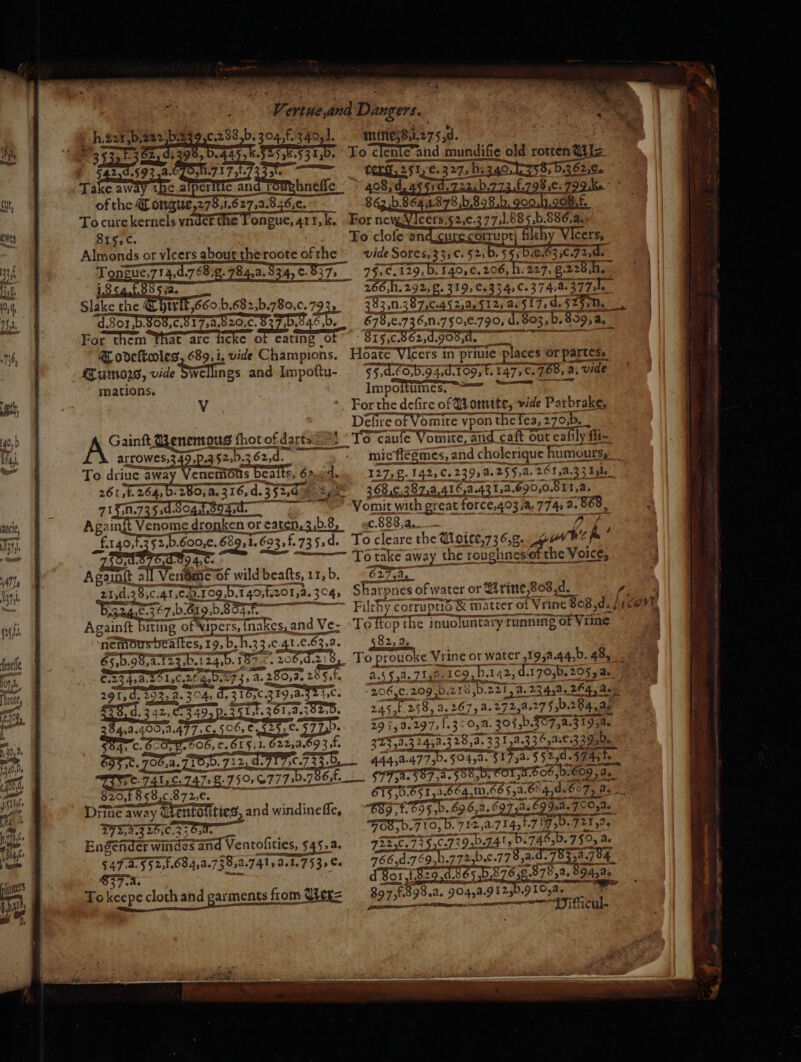 Vertue,and Dangers.
h.221,b,222,b.239,c,288,b.304,f.340,l.
353,f.362,d.398,b.445,k.525,k.531,b.
542,d.593,a.670,h.717,l.733,f.
Take away the asperitie and roughnesse
of the Tongue,278,i.627,a.846,e.
To cure kernels vnder the Tongue, 411, k.
815,c.
Almonds or vlcers about the roote of the
Tongue,714,d.768,g. 784,a. 834, c. 837,
i.854,f.885,a.
Slake the Thirst,660.b.682,b.780,c,793,
d,801,b.808,c,817,a,820,c. 837,b,846,b.
For them that are sicke of eating of
Todestooles, 689,i, vide Champions.
Tumors, vide Swellings and Impostu-
mations.
V
Against Venemous shot of darts
arrowes,349,p.352,b.362,d.
To driue away Venemous beasts, 62
261,f. 264, b.280, a. 316, d. 352,d
715,n.735,d.804,l.894,d.
Against Venome dronken or eaten,3,b.8,
f.140,f.352,b.600,e. 689,l. 693, f. 735,d.
750,d.876,d.894,c.
Against all Venome of wild beasts, 11, b.
21,d.38,c.41,c.b.109,b.140,f.201,a. 304,
b.324,c.367,b.619,b.804,f.
Against biting of vipers, snakes, and Ve-
nemous beastes,19, b, h.33,c.41.c.63,a.
65,b.98,a.123,b.124,b. 187 c. 206,d.218,
c.234,a.251,c,264,b.273, a. 280,a. 285,f.
291,d. 293, a. 304, d. 316,c.319,a.321,c.
328,d. 342, c. 349, p. 351,f. 361,a.382,b.
384,a.400,a.477,c. 506, c,525, c. 577,b.
584, c. 600,g.606, c. 615, l. 622,a.693,f.
695,c. 706,a.710,b. 712, d.717,c.733,b,
c. 741, c.747, g. 750, c,777,b.786,f.
820,f 858,c,872,c.
Driue away Ventosities, and windinesse,
272,a.326,c.336,a.
Engender windes and Ventosities, 545,a.
547.a. 552,f.684,a.738,a.741, a.l.753, c.
837.a.
To keepe cloth and garments from Ver-
mine,8,i.275,d.
To clense and mundifie old rotten Vl-
cers, 251, c. 327, h. 340.l.358, b.362,c.
408, d, 455,d.722,b.773,f.798,c. 799.k.
862,b.864,a.878,b.898,b. 900,h.908,f.
For new Vlcers,52,c.377,l.885,b.886,a.
To close and cure corrupt, filthy Vlcers,
vide Sores,33, c. 52, b. 55,b.c.63,c.72,d.
75,c.129, b. 140, c. 206, h. 227. g.228,h.
266,h. 292, g. 319, c.334, c. 374.a.377,l.
383,n.387,c.452,a,512, a. 517, d. 525,n.
678,c.736,n.750,c.790, d. 803, b. 809, a,
815,c.862,d.908,d.
Hoate Vlcers in priuie places or partes,
55,d.60,b.94,d.109, f. 147, c. 768, a, vide
Impostumes.
For the desire of Vomite, vide Parbrake.
Desire of Vomite vpon the sea, 270,b.
To cause Vomite, and cast out easily sli-
mie flegmes, and cholerique humours,
127, g. 142, c. 239, a. 255,a. 261,a.331,b.
368,c.387,a,416,a.431,a.690,o.811,a.
Vomit with great force,403,a, 774, a. 868,
c.888,a.
To cleare the Voice,736,g.
To take away the roughnes of the Voice,
627,a.
Sharpnes of water or Vrine,808,d.
Filthy corruptiõ & matter of Vrine 808,d.
To stop the inuoluntary running of Vrine
582, a.
To prouoke Vrine or water ,19,a.44.b. 48,
a.55,a.71,a.109, h.142, d.170,b. 205, a.
206,c. 209,b.218,b.221, a. 234,a. 264, a.
245,f. 258, a. 267, a. 272,a.275,b.284,a.
295, a.297, f.300,a. 305,b.307,a.319,a.
323,a.324,a.328,a. 331,a.336,a.c.339,b.
444,a.477,b. 504,a. 517,a. 552,d.574,f.
577,a. 587,a. 588,b, 601,a.606,b.609, a.
615,b.651,a.664,m.665,a.674,d.675, a.
689 ,f.695,b. 696,a. 697,a.699,a. 700,a.
708,b.710, b. 712,a.714,f.717,b.721,a.
722,c.735,c.739,b.741, b.746,b. 750, a.
766,d.769,b.772,b.c.778,a.d. 783,a.784
d 801,f.829,d.865,b,876,g.878,a, 894,a,
897,f.898,a. 904,a.912,b.910,a.
Difficul-